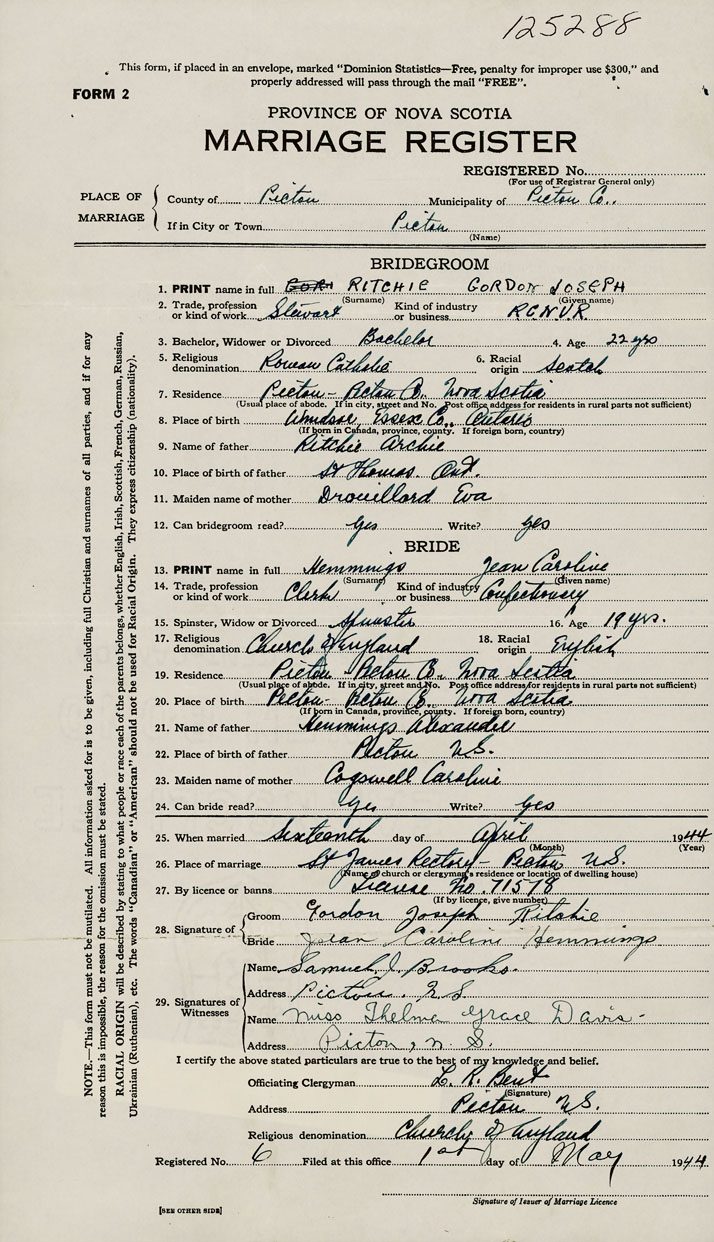 125288
This form, if placed in an envelope, marked "Dominion Statistics—Free, penalty for improper use $300," and
properly addressed will pass through the mail "FREE".
FORM 2
PROVINCE OF NOVA SCOTIA
MARRIAGE REGISTER
REGISTERED No.
(For use of Registrar General only)
PLACE OF MARRIAGE
County of Pictou Municipality of Pictou Co.,
If in City or Town Pictou
(Name)
BRIDEGROOM
1. PRINT name in full RITCHIE GORDON JOSEPH
(Surname) (Given name)
2. Trade, profession or kind of work Stewart Kind of industry or business R.C.N.V.R.
3. Bachelor, Widower or Divorced Bachelor 4. Age 22 yrs
5. Religious denomination Roman Catholic 6. Racial origin Scotch
7. Residence Pictou - Pictou Co. Nova Scotia
(Usual place of abode. If in city, street and No. Post office address for residents in rural parts not sufficient)
8. Place of birth Windsor, Essex Co., Ontario
(If born in Canada, province, county. If foreign born, country)
9. Name of father Ritchie Archie
10. Place of birth of father St Thomas. Ont.
11. Maiden name of mother Drouillard Eva
12. Can bridegroom read? Yes Write? Yes
BRIDE
13. PRINT name in full Hemmings Jean Caroline
(Surname) (Given name)
14. Trade, profession or kind of work Clerk Kind of industry or business Confectionery
15. Spinster, Widow or Divorced Spinster 16. Age 19 yrs.
17. Religious denomination Church of England 18. Racial origin English
19. Residence Pictou Pictou Co. Nova Scotia
(Usual place of abode. If in city, street and No. Post office address for residents in rural parts not sufficient)
20. Place of birth Pictou - Pictou Co. Nova Scotia
(If born in Canada, province, county. If foreign born, country)
21. Name of father Hemmings Alexander
22. Place of birth of father Pictou N.S.
23. Maiden name of mother Cogswell Caroline
24. Can bride read? Yes Write? Yes
25. When married Sixteenth day of April 1944
(Month) (Year)
26. Place of marriage St James Rectory - Pictou N.S.
(Name of church or clergyman's residence or location of dwelling house)
27. By licence or banns License No. 71578
(If by licence, give number)
28. Signature of
Groom Gordon Joseph Ritchie
Bride Jean Caroline Hemmings
29. Signatures of Witnesses
Name Samuel J. Brooks.
Address Pictou, N.S.
Name Miss Thelma Grace Davis -
Address Pictou, N.S.
I certify the above stated particulars are true to the best of my knowledge and belief.
Officiating Clergyman L. R. Bent
(Signature)
Address Pictou N.S.
Religious denomination Church of England
Registered No. 6 Filed at this office 1st day of May 1944
Signature of Issuer of Marriage Licence
[SEE OTHER SIDE]
NOTE.—This form must not be mutilated. All information asked for is to be given, including full Christian and surnames of all parties, and if for any
reason this is impossible, the reason for the omission must be stated.
RACIAL ORIGIN will be described by stating to what people or race each of the parents belongs, whether English, Irish, Scottish, French, German, Russian,
Ukrainian (Ruthenian), etc. The words "Canadian" or "American" should not be used for Racial Origin. They express citizenship (nationality).